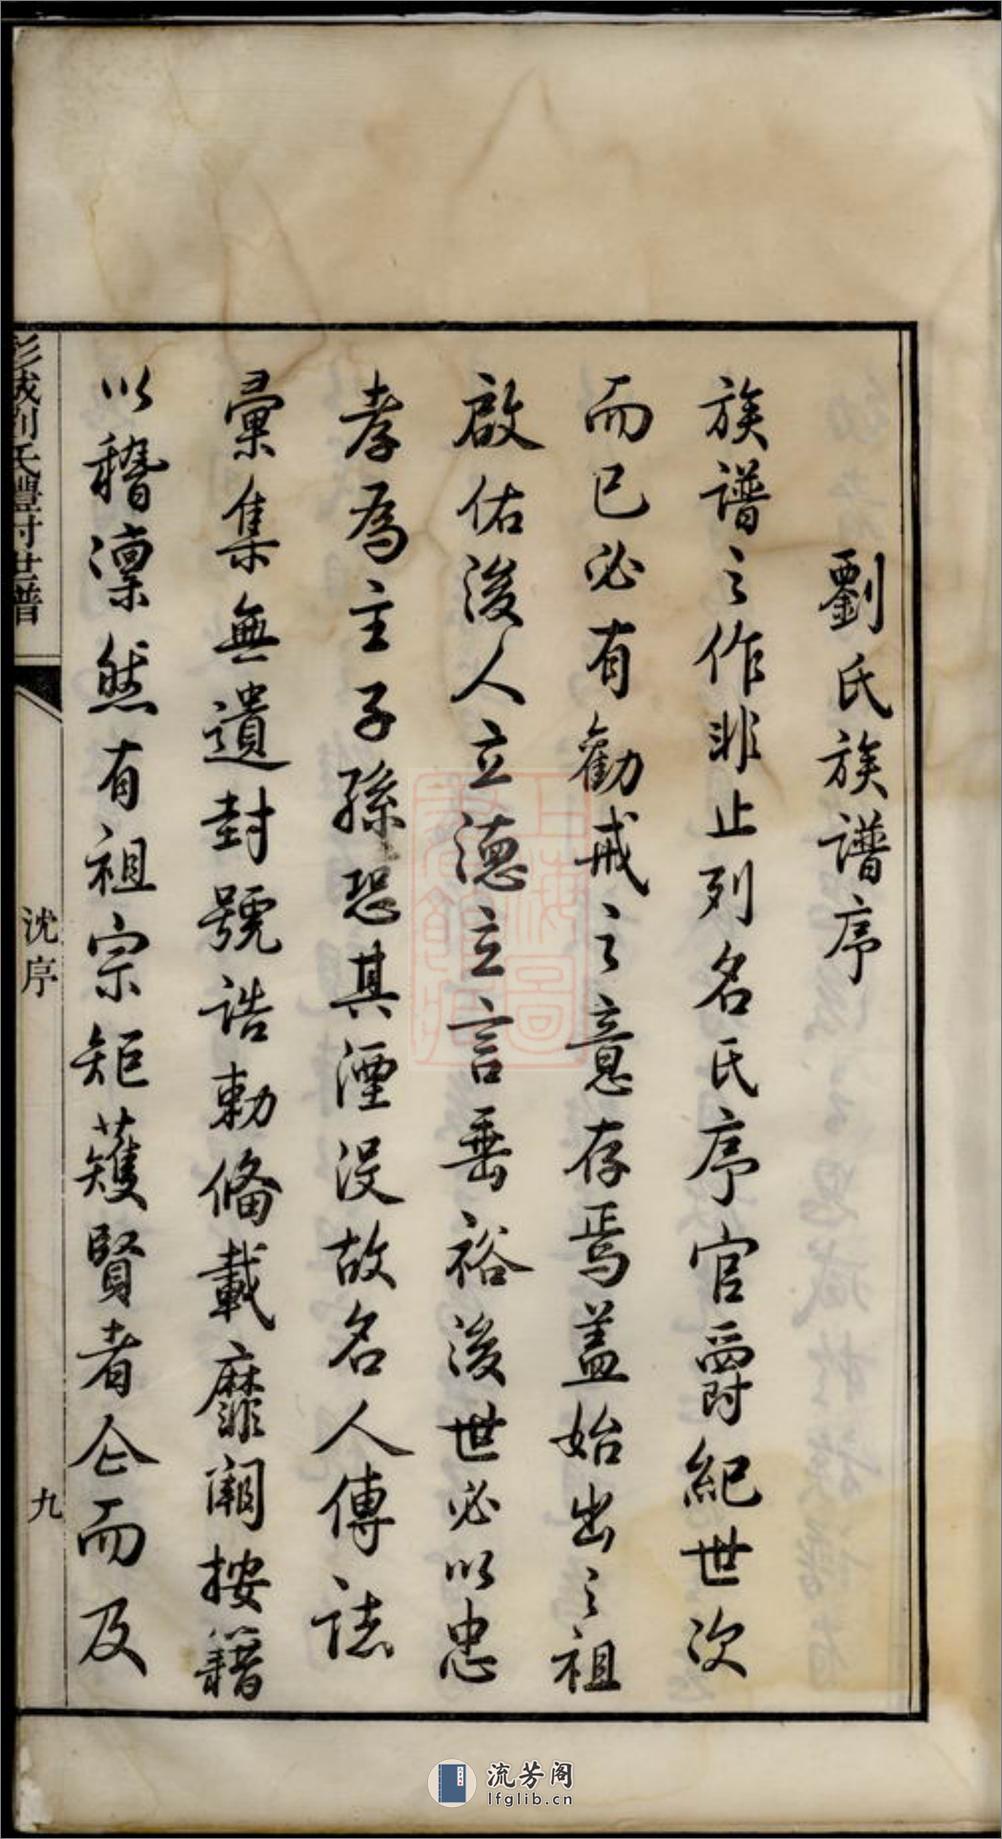 劉氏族譜序
族譜之作非止列名氏序官爵紀世次
而已必有勸戒之意存焉蓋始出之祖
啟佑後人立德立言垂裕後世必以忠
孝為主子孫恐其湮沒故名人傳誌
彙集無遺封號誥勅備載靡闕按籍
以稽凜然有祖宗矩矱賢者企而及
彭城劉氏豐村世譜
沈序
九
上海圖書館藏
流芳阁
lfglib.cn